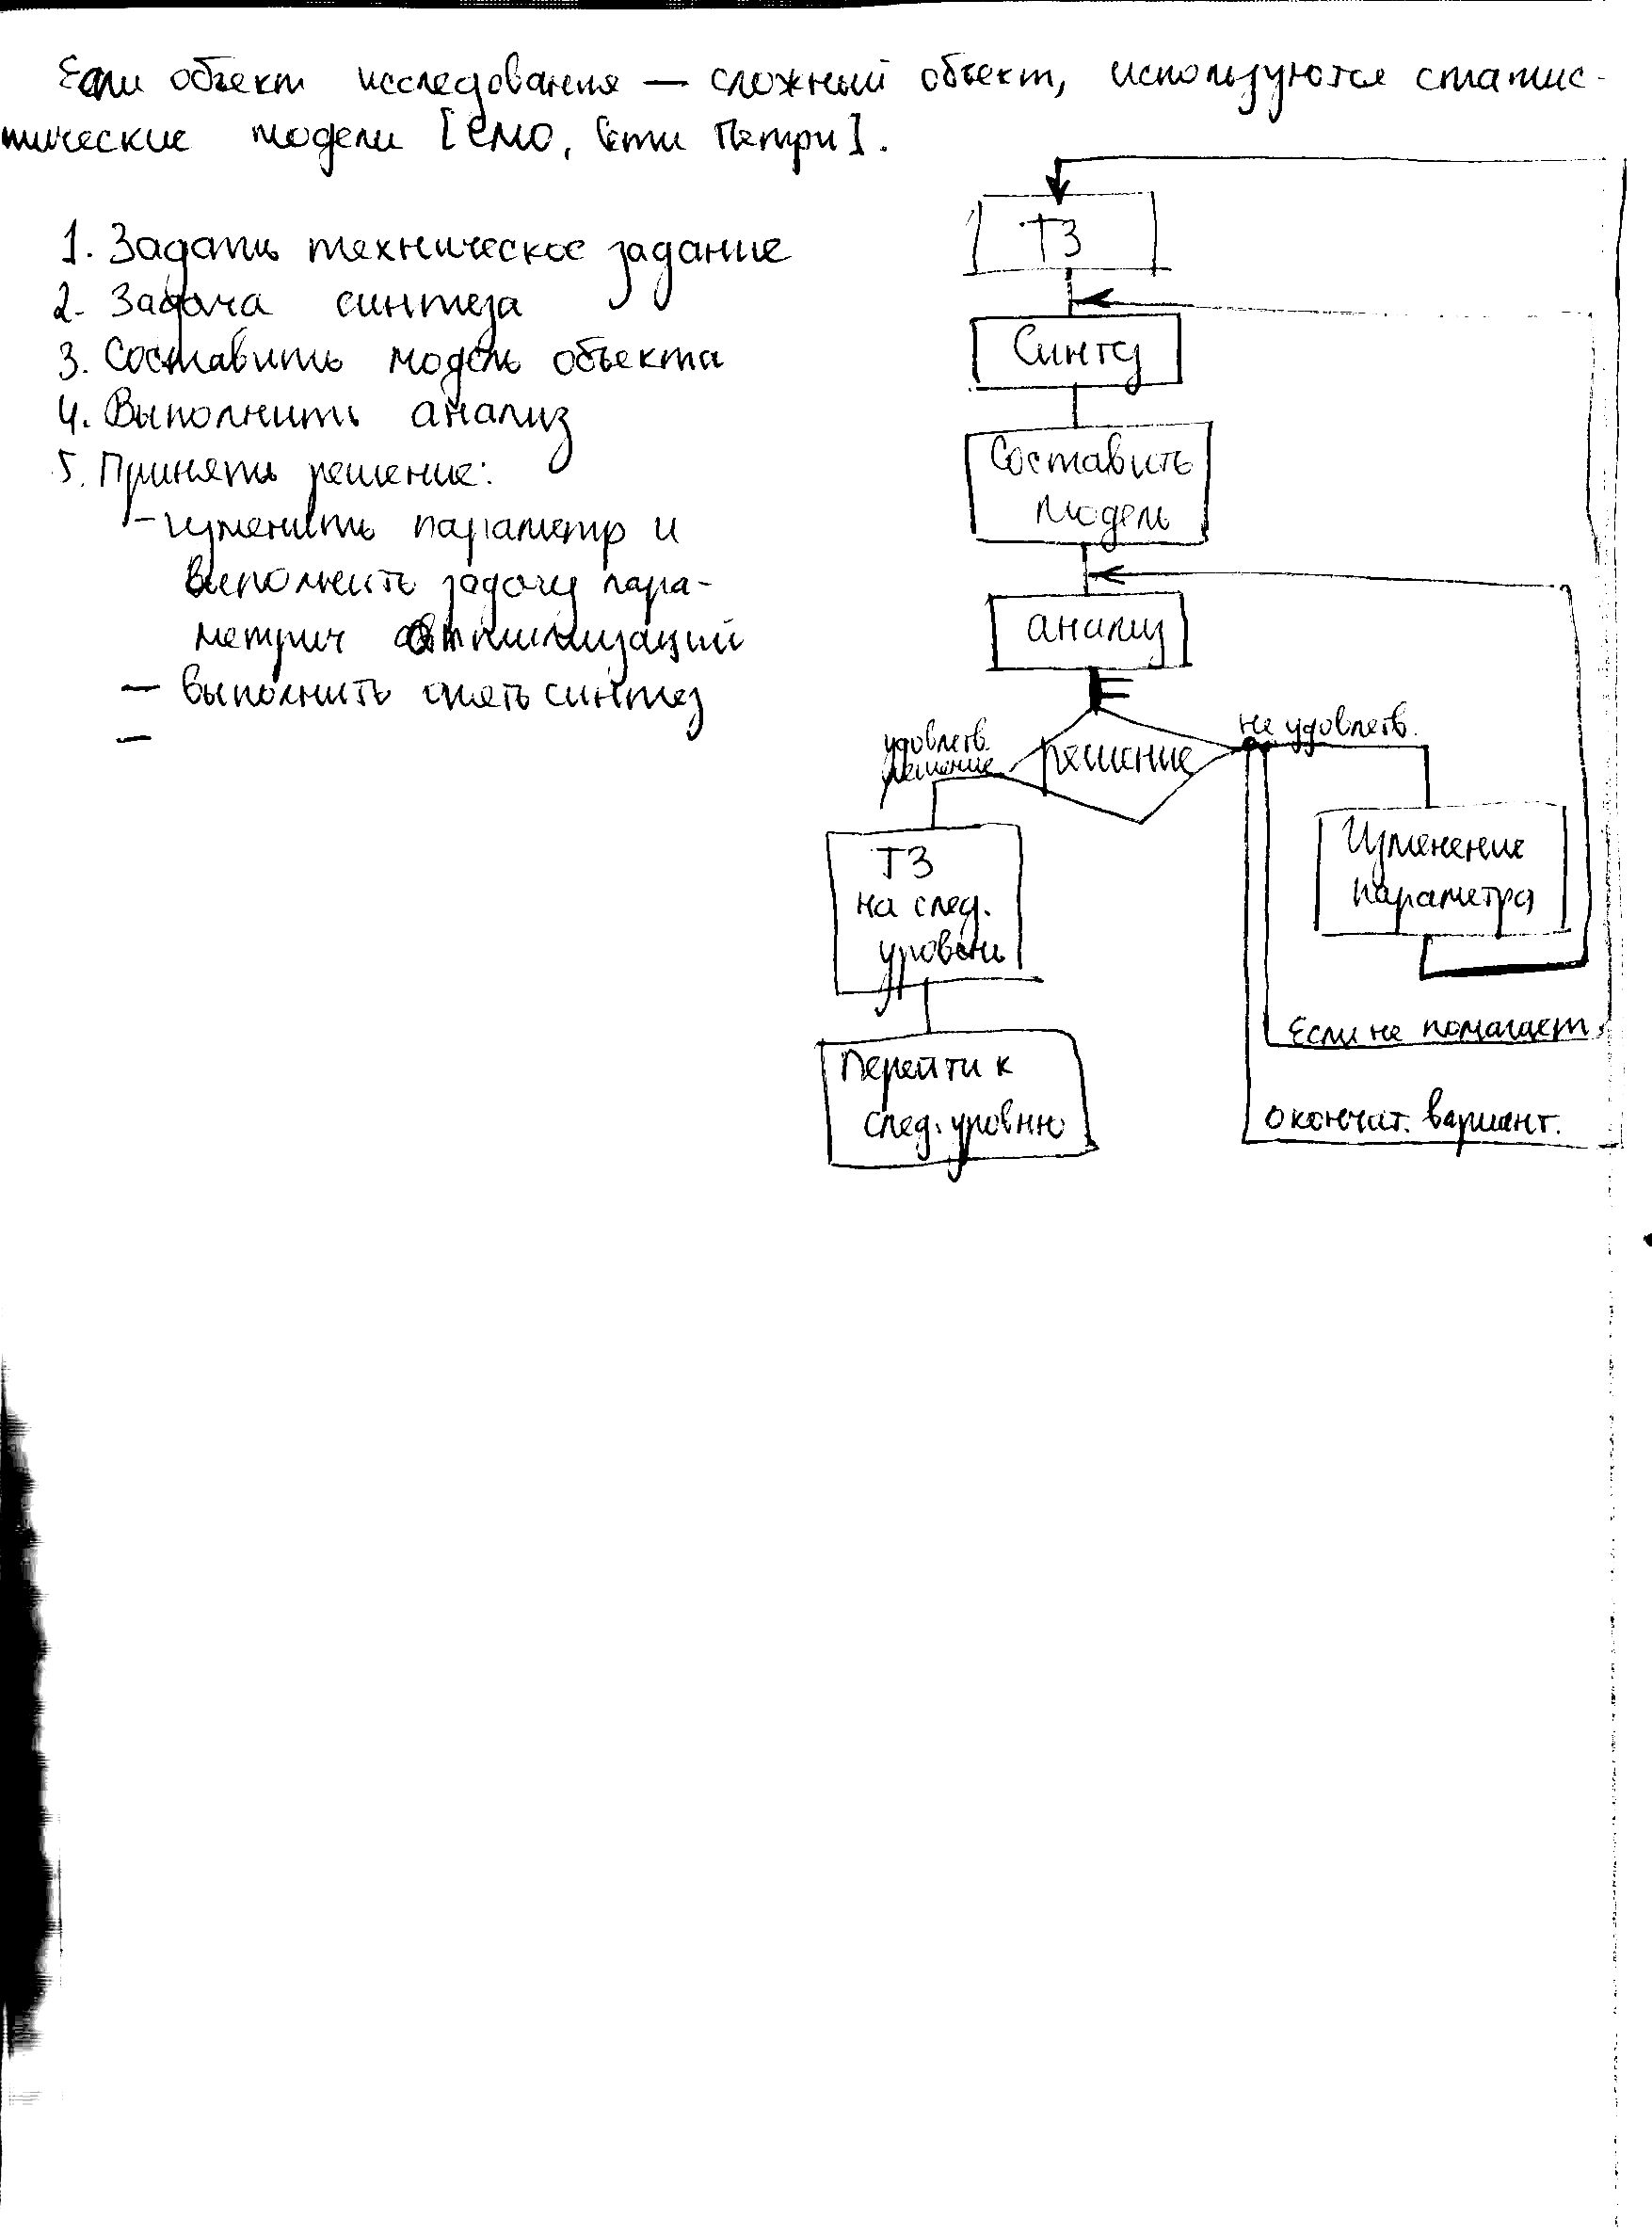 Если объект исследования — сложный объект, используются статис-
тические модели [СМО, Сети Петри].
1. Задать техническое задание
2. Задача синтеза
3. Составить модель объекта
4. Выполнить анализ
5. Принять решение:
- изменить параметр и
выполнить задачу пара-
метрич оптимизаций
— выполнить опять синтез
—
ТЗ
Синтез
Составить
модель
анализ
удовлетв.
решение
решение
не удовлетв.
Изменение
параметра
ТЗ
на след.
уровень
Если не помагает
Перейти к
след. уровню
окончат. вариант.